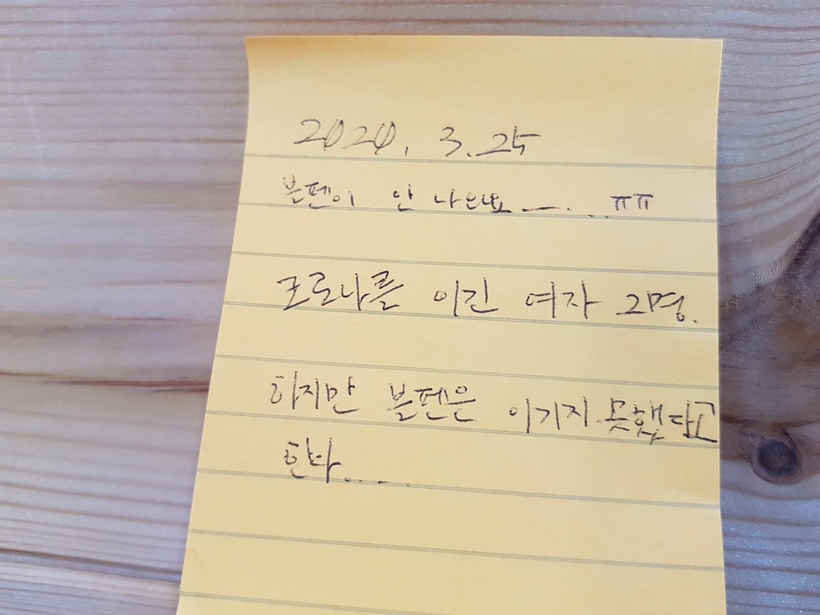 2020. 3.25
볼펜이 안 나와요 ㅡ... ㅠㅠ
코로나를 이긴 여자 2명.
하지만 볼펜은 이기지 못했다고
한다....